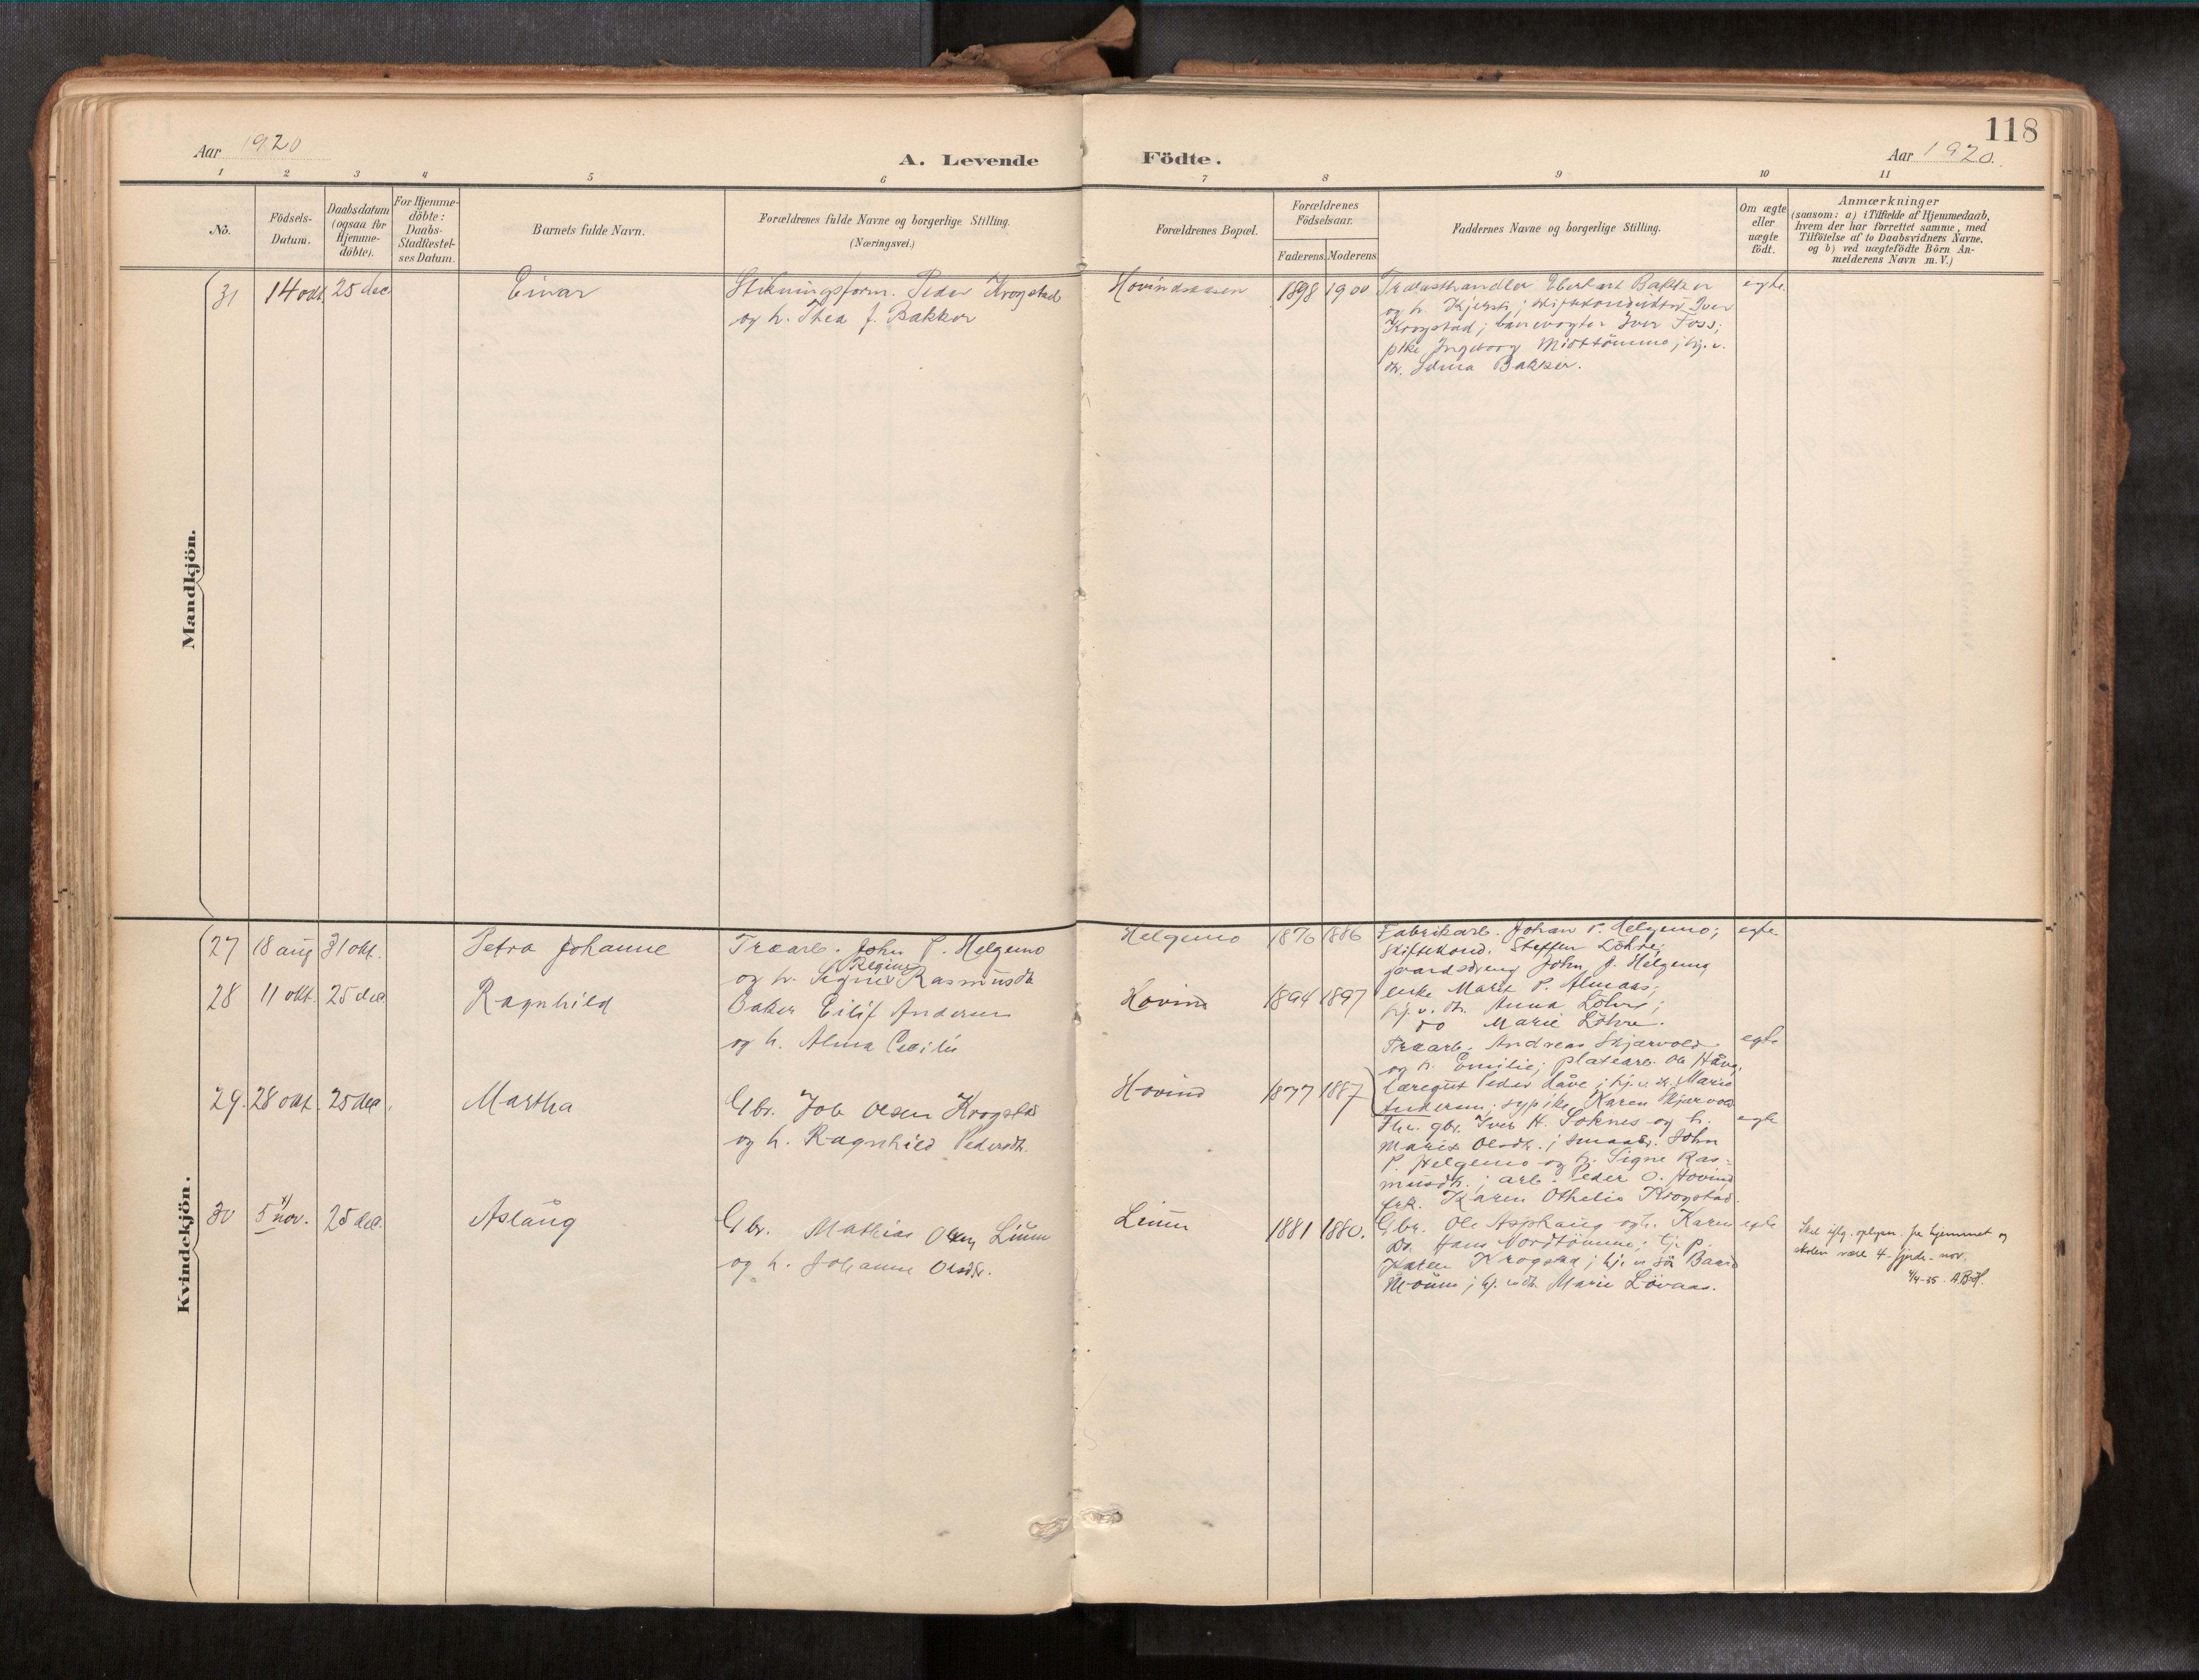 118
Aar 1920
A. Levende Födte.
Aar 1920.
1 2 3 4 5 6 7 8 9 10 11
Nö.
Födsels-
Datum.
Daabsdatum
(ogsaa for
Hjemme-
döbte).
For Hjemme-
döbte:
Daabs-
Stadfæstel-
ses Datum.
Barnets fulde Navn.
Forældrenes fulde Navne og borgerlige Stilling.
(Næringsvei.)
Forældrenes Bopæl.
Forældrenes
Födselsaar.
Faderens. Moderens.
Faddernes Navne og borgerlige Stilling.
Om ægte
eller
uægte
födt.
Anmærkninger
(saasom: a) i Tilfælde af Hjemmedaab,
hvem der har forrettet samme, med
Tilföielse af to Daabsvidners Navne,
og b) ved uægtefödte Börn An-
melderens Navn m. V.)
Mandkjön.
31 14 okt 25 dec.
Einar
Stikningsform. Peder Krogstad
og h. Thea f. Bakker
Hovindsaasen
1898 1900
Trælasthandler Eberhart Bakker
og h. Kjersti; skiftekonduktör Iver
Krogstad; banevogter Iver Foss;
pike Ingeborg Midttömme; hj. v.
dr. Selma Bakker.
egte.
Kvindekjön.
27 18 aug 31 okt.
Petra Johanne
Træarb. John P. Helgemo
Regine
og h. Signe Rasmusdtr
Helgemo
1876 1886
Fabrikarb. Johan P. Helgemo;
skiftekond. Steffen Löhre;
gaardsdreng John J. Helgemo
enke Marit P. Almaas;
hj. v. dr. Anna Löhre;
do Marie Löhre.
egte
28 11 okt. 25 dec.
Ragnhild
Baker Eilif Andersen
og h. Alma Cecilie
Hovin
1894 1897
Træarb. Andreas Skjærvold
og h. Emilie; platearb. Ole Håve,
læregut Peder Håve; hj. v. dr. Marie
Andersen; sypike Karen Skjærvold
egte
29. 28 okt. 25 dec.
Martha
Gbr. Job Olsen Krogstad
og h. Ragnhild Pedersdtr.
Hovind
1877 1887
Fhv. gbr. Iver H. Soknes og h.
Marit Olsdtr.; smaabr. John
P. Helgemo og h. Signe Ras-
musdtr.; arb. Peder O. Hovind
frk. Karen Othelie Krogstad.
egte
30 5 x) nov. 25 dec.
Aslaug
Gbr. Mathias Olsen Lium
og h. Johanne Olsdtr.
Lium
1881 1880.
Gbr. Ole Asphaug og h. Karen
Do. Hans Nordtömme; hj. p.
Karen Krogstad; hj. v. sön Baard
Moum; hj. v. dtr. Marie Lövaas.
egte
Skal iflg. oplysn. fra hjemmet og
skolen være 4 - fjerde - nov.
4/4-35. A.B.H.